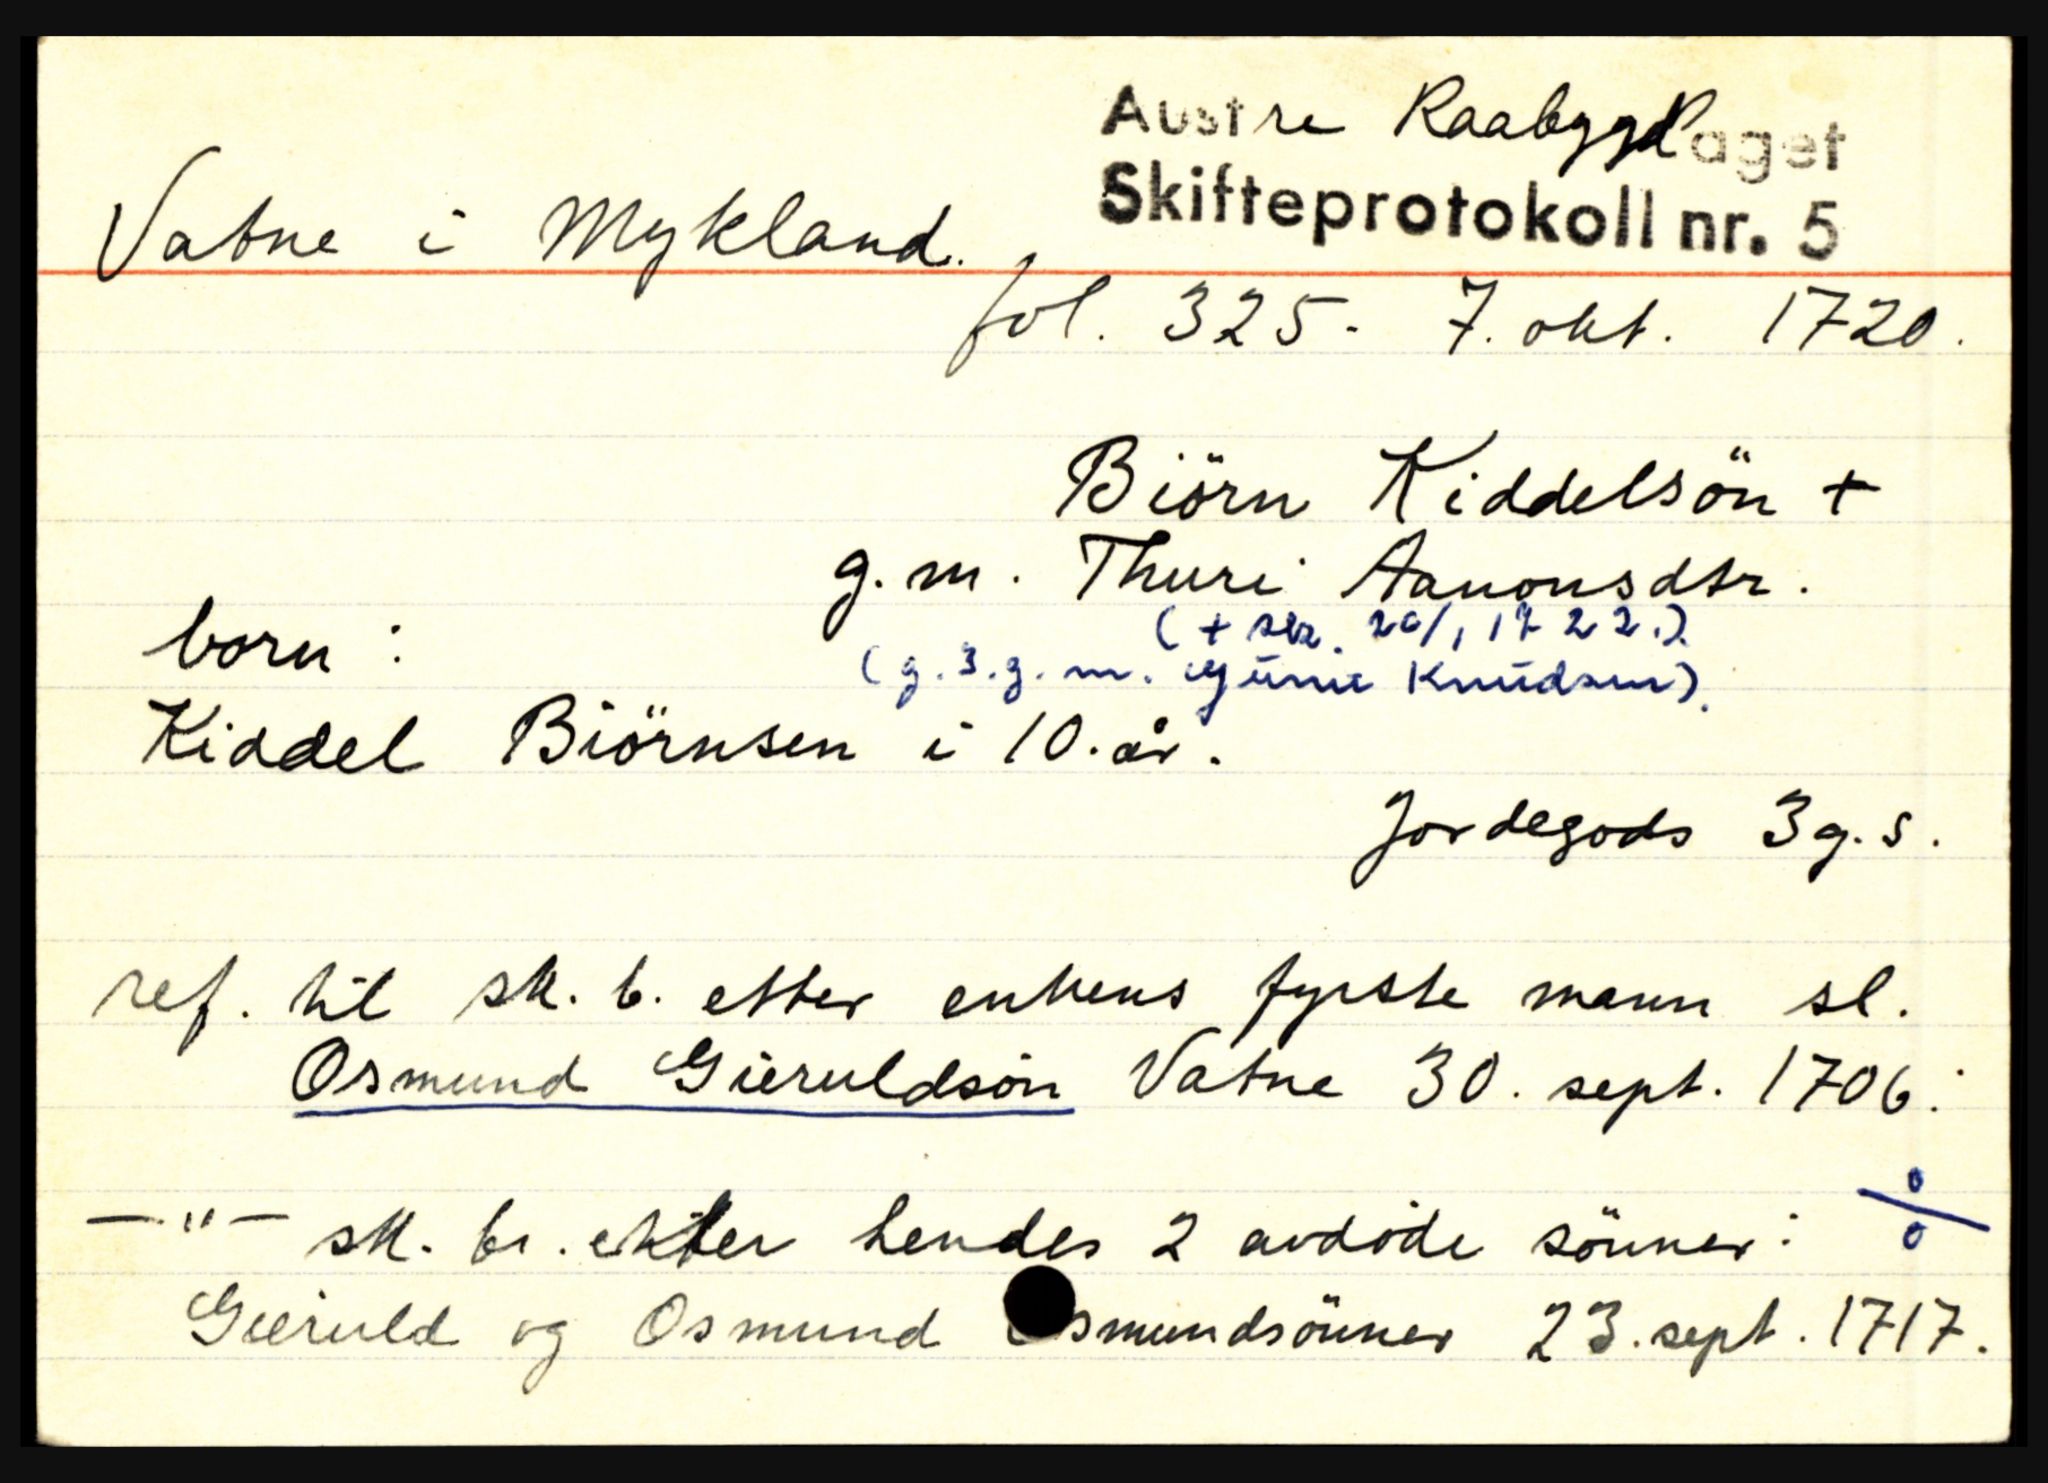 Austre Raabygdlaget
Skifteprotokoll nr. 5
Vatne i Mykland.
fol. 325. 7. okt. 1720.
Biörn Kiddelsön +
g. m. Thuri Aanonsdtr.
(+ 20/1 1722.)
born:
(g. 3. g. m. Knudsen).
Kiddel Biörnsen i 10. år.
Jordegods 3 g. s.
ref. til sk. b. etter enkens fyrste mann sl.
Osmund Gieruldsön Vatne 30. sept. 1706:
—"— sk. br. etter hendes 2 avdöde sönner:
Gieruld og Osmund Osmundsönner 23. sept. 1717.